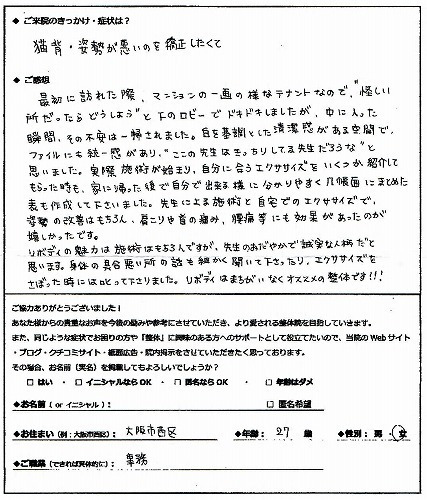 ◆ ご来院のきっかけ・症状は？
猫背・姿勢が悪いのを矯正したくて
◆ ご感想
最初に訪れた際、マンションの一画の様なテナントなので、"怪しい
所だったらどうしよう"と下のロビーでドキドキしましたが、中に入った
瞬間、その不安は一掃されました。白を基調とした清潔感がある空間で、
ファイルにも統一感があり、"この先生はきっちりしてる先生だろうな"と
思いました。実際施術が始まり、自分に合うエクササイズをいくつか紹介して
もらった時も、家に帰った後で自分で出来る様に分かりやすく几帳面にまとめた
表も作成して下さいました。先生による施術と自宅でのエクササイズで、
姿勢の改善はもちろん、肩こりや首の痛み、腰痛等にも効果があったのが
嬉しかったです。
リボディの魅力は施術はもちろんですが、先生のおだやかで誠実な人柄だと
思います。身体の具合悪い所の話も細かく聞いて下さったり、エクササイズを
さぼった時には叱って下さりました。リボディはまちがいなくオススメの整体です!!!
ご協力ありがとうございました！
あなた様からの貴重なお声を今後の励みや参考にさせていただき、より愛される整体院を目指していきます。
また、同じような症状でお困りの方や「整体」に興味のある方へのサポートとして役立てたいので、当院の Web サイト
・ブログ・クチコミサイト・紙面広告・院内掲示をさせていただきたく思っております。
その場合、お名前（実名）を掲載してもよろしいでしょうか？
□ はい ・ □ イニシャルなら OK ・ □ 匿名なら OK ・ □ 年齢はダメ
◆お名前（ or イニシャル ）： □ 匿名希望
◆お住まい（例：大阪市西区）： 大阪市西区 ◆年齢： 27 歳 ◆性別： 男 ・ 女
◆ご職業（できれば具体的に）： 事務